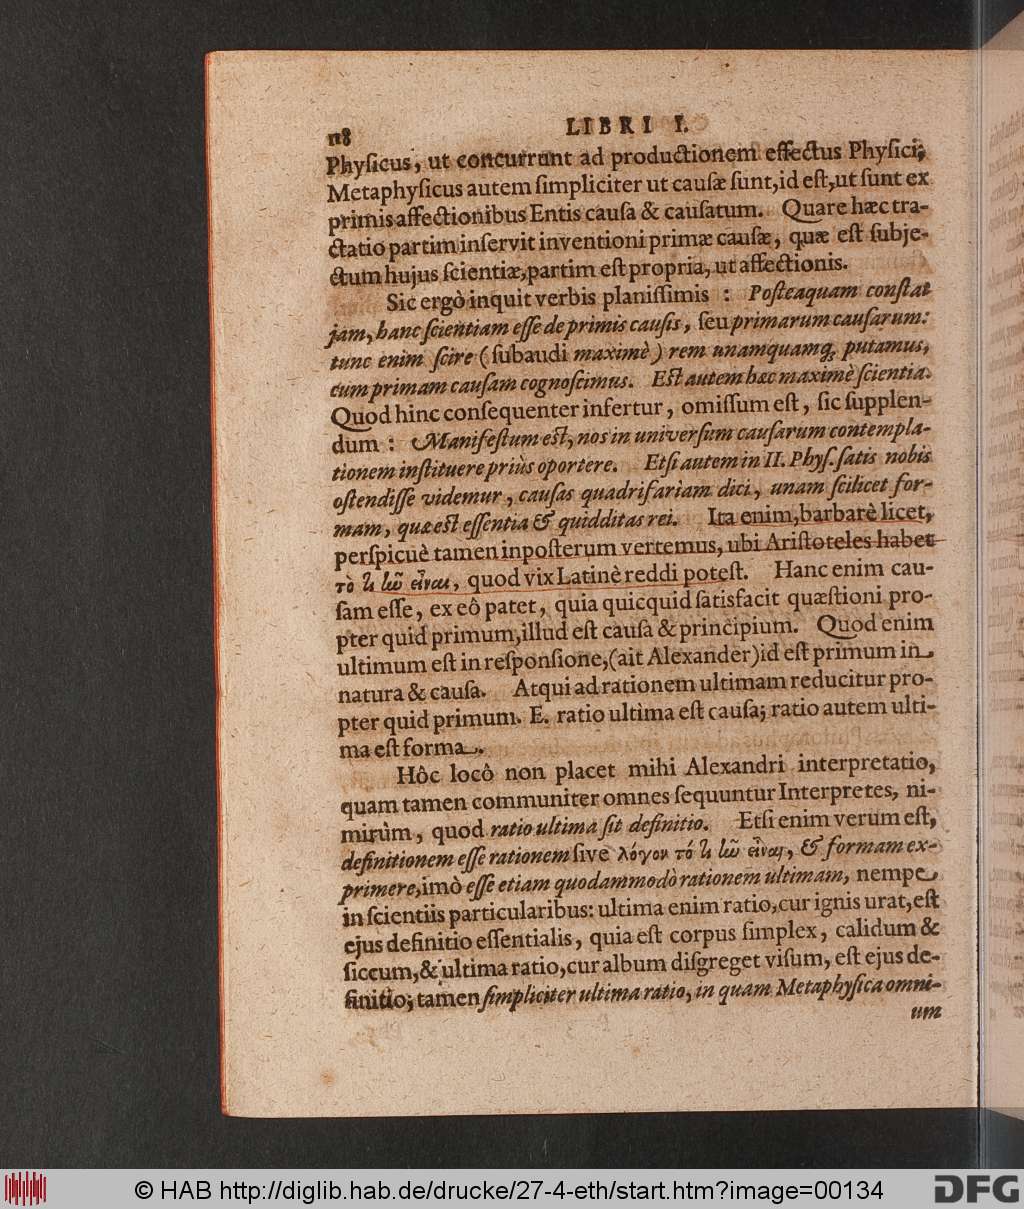 118
LIBRI I.
Physicus, ut concurrunt ad productionem effectus Physici;
Metaphysicus autem simpliciter ut causæ sunt, id est, ut sunt ex
primis affectionibus Entis causa & causatum. Quare hæc tra-
ctatio partim inservit inventioni primæ causæ, quæ est subje-
ctum hujus scientiæ, partim est propria, ut affectionis.
Sic ergò inquit verbis planissimis : Posteaquam constat
jam, hanc scientiam esse de primis causis, seu primarum causarum:
tunc enim scire (subaudi maximè) rem unamquamq; putamus,
cum primam causam cognoscimus. Est autem hæc maximè scientia.
Quod hinc consequenter infertur, omissum est, sic supplen-
dum : Manifestum est, nos in universum causarum contempla-
tionem instituere priùs oportere. Etsi autem in II. Phys. satis nobis
ostendisse videmur, causas quadrifariàm dici, unam scilicet for-
mam, quæ est essentia & quidditas rei. Ita enim, barbarè licet,
perspicuè tamen inposterum vertemus, ubi Aristoteles habet
τὸ τί ἦν εἶναι, quod vix Latinè reddi potest. Hanc enim cau-
sam esse, ex eô patet, quia quicquid satisfacit quæstioni pro-
pter quid primum, illud est causa & principium. Quod enim
ultimum est in responsione, (ait Alexander) id est primum in
natura & causa. Atqui ad rationem ultimam reducitur pro-
pter quid primum. E. ratio ultima est causa; ratio autem ulti-
ma est forma.
Hôc locô non placet mihi Alexandri interpretatio,
quam tamen communiter omnes sequuntur Interpretes, ni-
mirùm, quod ratio ultima sit definitio. Etsi enim verum est,
definitionem esse rationem sive λόγον τό τί ἦν εἶναι, & formam ex-
primere, imò esse etiam quodammodò rationem ultimam, nempe
in scientiis particularibus: ultima enim ratio, cur ignis urat, est
ejus definitio essentialis, quia est corpus simplex, calidum &
siccum, & ultima ratio, cur album disgreget visum, est ejus de-
finitio; tamen simpliciter ultima ratio, in quam Metaphysica omni-
um
© HAB http://diglib.hab.de/drucke/27-4-eth/start.htm?image=00134
DFG